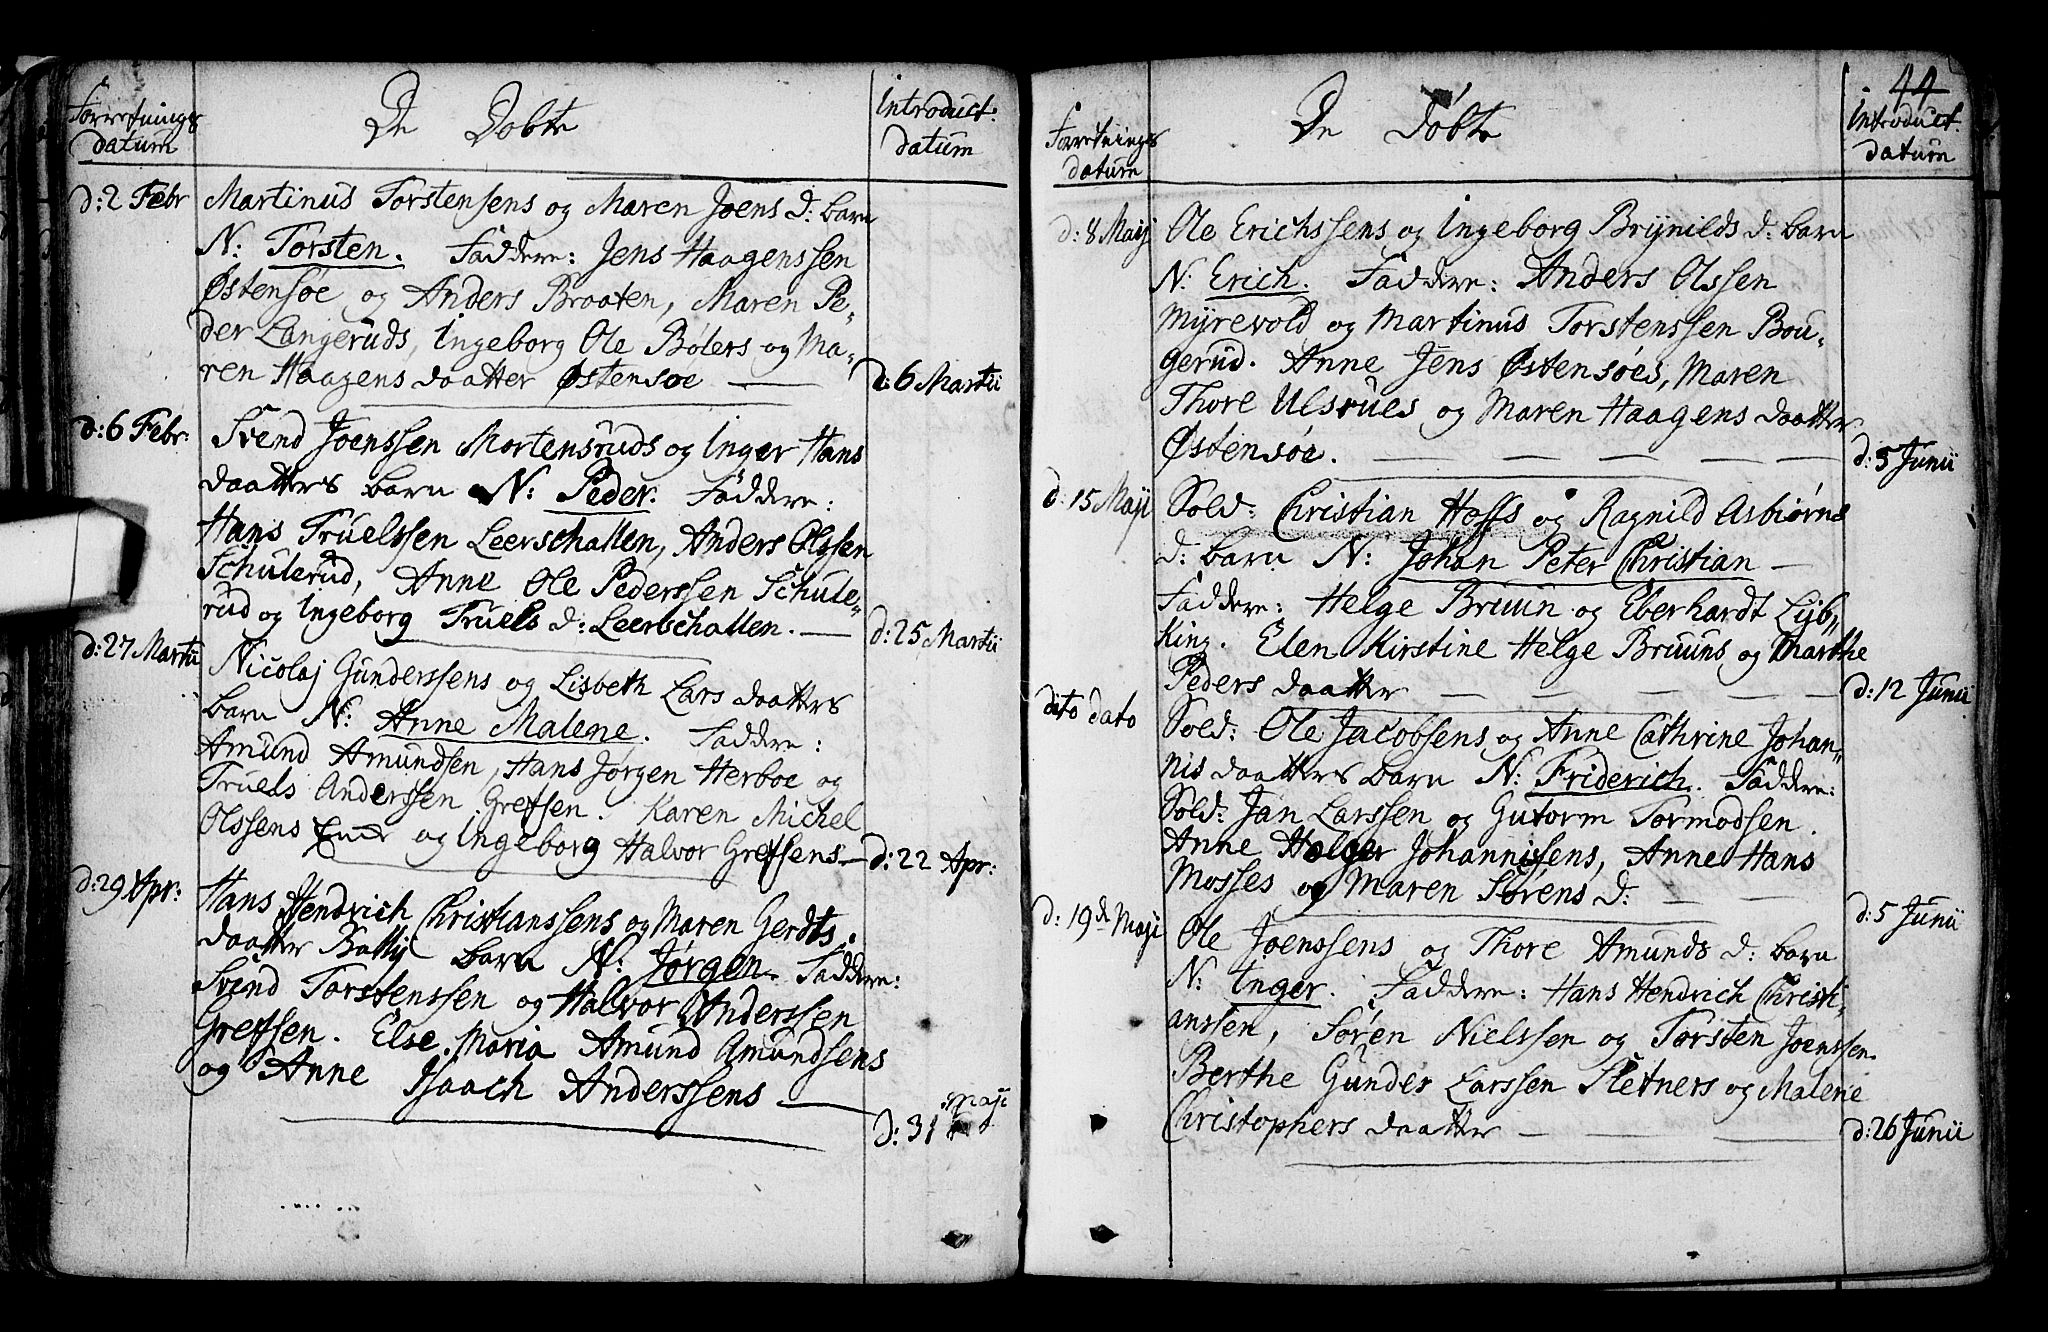 Forretnings
datum
De Døbte
Introduct:
datum
d: 2 Febr
Martinus Torstensens og Maren Joens d: barn
N: Torsten. Faddere: Jens Haagenssen
Østensøe og Anders Braaten, Maren Pe„
der Langeruds, Ingeborg Ole Bølers og Ma„
ren Haagens daatter Østensøe —
d: 6 Martii
d: 6 Febr:
Svend Joenssen Mortensruds og Inger Hans
daatters barn N: Peder. Faddere:
Hans Truelssen Leerschallen, Anders Olssen
Schulerud, Anne Ole Pederssen Schule„
rud og Ingeborg Truels d: Leerschallen. —
d: 25 Martii
d: 27 Martii
Nicolaj Gunderssens og Lisbeth Lars daatters
barn N: Anne Malene. Faddere:
Amund Amundsen, Hans Jørgen Herboe og
Truels Anderssen Grefsen. Karen Michel
Olssens og Ingeborg Halvor Grefsens —
d: 22 Apr:
d: 29 Apr:
Hans Hendrich Christianssens og Maren Gerdts„
daatter Batty barn N: Jørgen. Faddere:
Svend Torstenssen og Halvor Anderssen
Grefsen. Else Maria Amund Amundsens
og Anne Isaach Anderssens —
Maji
d: 31
44
Forretnings
datum
De Døbte
Introduct.
datum
d: 8 Maij
Ole Erichssens og Ingeborg Brynilds d: barn
N: Erich. Faddere: Anders Olssen
Myrevold og Martinus Torstenssen Bou„
gerud. Anne Jens Østensøes, Maren
Thore Ulsrues og Maren Haagens daatter
Østensøe. — — — — —
d: 5 Junii
d: 15 Maji
Sold: Christian Hoffs og Ragnild Asbiørns
d: barn N: Johan Peter Christian —
Faddere: Helge Bruun og Eberhardt Lyb„
king. Elen Kirstine Helge Bruuns og Marthe
Peders daatter — — — — —
d: 12 Junii
dito dato
Sold: Ole Jacobsens og Anne Cathrine Johan„
nis daatters barn N: Friderich. Faddere:
Sold: Jan Larssen og Gutorm Tormodsen.
Anne Holger Johannisens, Anne Hans
Mosses og Maren Sørens d: — —
d: 5 Junii
d: 19de Maji
Ole Joenssens og Thore Amunds d: barn
N: Inger. Faddere: Hans Hendrich Christi„
anssen, Søren Nielssen og Torsten Joenssen.
Berthe Gunder Larssen Sletners og Malene
Christophers daatter — — — —
d: 26 Junii